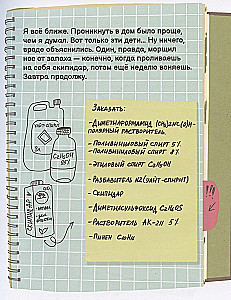 Я всё ближе. Проникнуть в дом было проще,
чем я думал. Вот только эти дети... Ну ничего,
вроде объяснились. Один, правда, морщил
нос от запаха — конечно, когда проливаешь
на себя скипидар, потом ещё неделю воняешь.
Завтра продолжу.
Заказать:
-Диметилформамид (CH3)2NC(O)H-
-полярный растворитель.
-Поливиниловый спирт 5%
-Поливиниловый спирт
-Этиловый спирт C2H5OH
-Разбавитель N2 (уайт-спирит)
-Скипидар
-Диметилсульфоксид C2H6OS
-Растворитель АК-211 5%
-Пинен C10H16
C2H5OH
95%